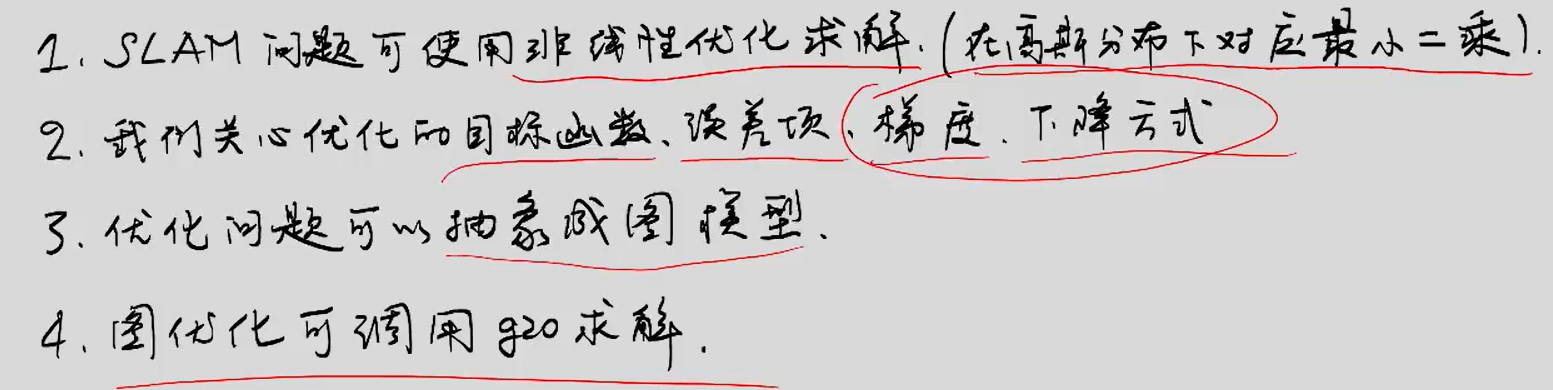 1. SLAM 问题可使用非线性优化求解.(在高斯分布下对应最小二乘).
2. 我们关心优化的目标函数、误差项、梯度、下降方式
3. 优化问题可以抽象成图模型.
4. 图优化可调用 g2o 求解.